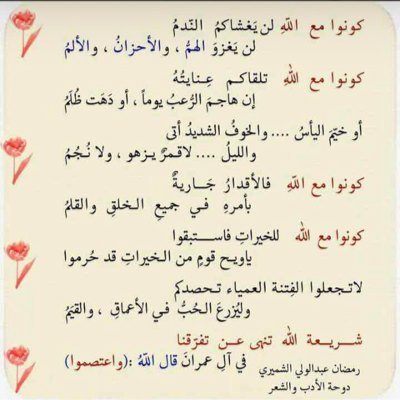 كونوا مع اللهِ لن يَغشاكمُ النّدمُ
لن يَغزوَ الهمُّ ، والأحزانُ ، والألمُ
كونوا مع اللهِ تلقاكـم عِـنايتُهُ
إن هاجمَ الرُّعبُ يوماً ، أو دَهَت ظُلَمُ
أو خيّم اليأسُ .... والخوفُ الشديدُ أتى
والليلُ .... لاقمرٌ يـزهو ، ولا نُـجُمُ
كونوا مع اللهِ فالأقدارُ جَـاريةٌ
بأمرهِ في جميعِ الخلقِ والقلمُ
كونوا مع الله للخيراتِ فاســتبقوا
ياويـح قومٍ من الـخيراتِ قد حُرموا
لاتـجعلوا الفِتنة العمياء تـحصدكم
وليُزرعَ الـحُبُّ في الأعماقِ ، والقيَمُ
شـريـعة الله تنهى عـن تفرّقنا
في آلِ عمرانَ قال اللهُ :(واعتصموا)
رمضان عبدالولي الشميري
دوحة الأدب والشعر